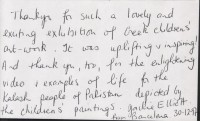 Thankyou for such a lovely and
exciting exhibition of Greek childrens'
art-work. It was uplifting & inspiring!
And thank you, too, for the enlightening
video & examples of life for the
Kalash people of Pakistan depicted by
the childrens' paintings.
30-12-97